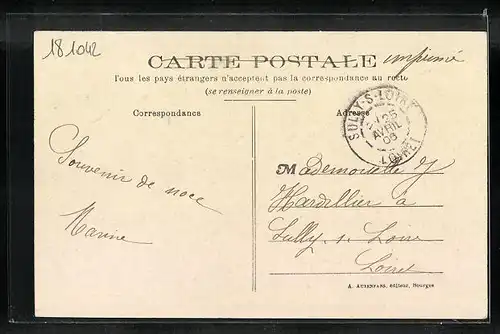 181042
CARTE POSTALE imprimé
Tous les pays étrangers n'acceptent pas la correspondance au recto
(se renseigner à la poste)
Correspondance
Adresse
SULLY-S-LOIRE
25
AVRIL
LOIRET
Souvenir de noce
Marine
Mademoiselle J
Hardillier à
Sully s. Loire
Loiret
A. AUXENFANS, éditeur, Bourges